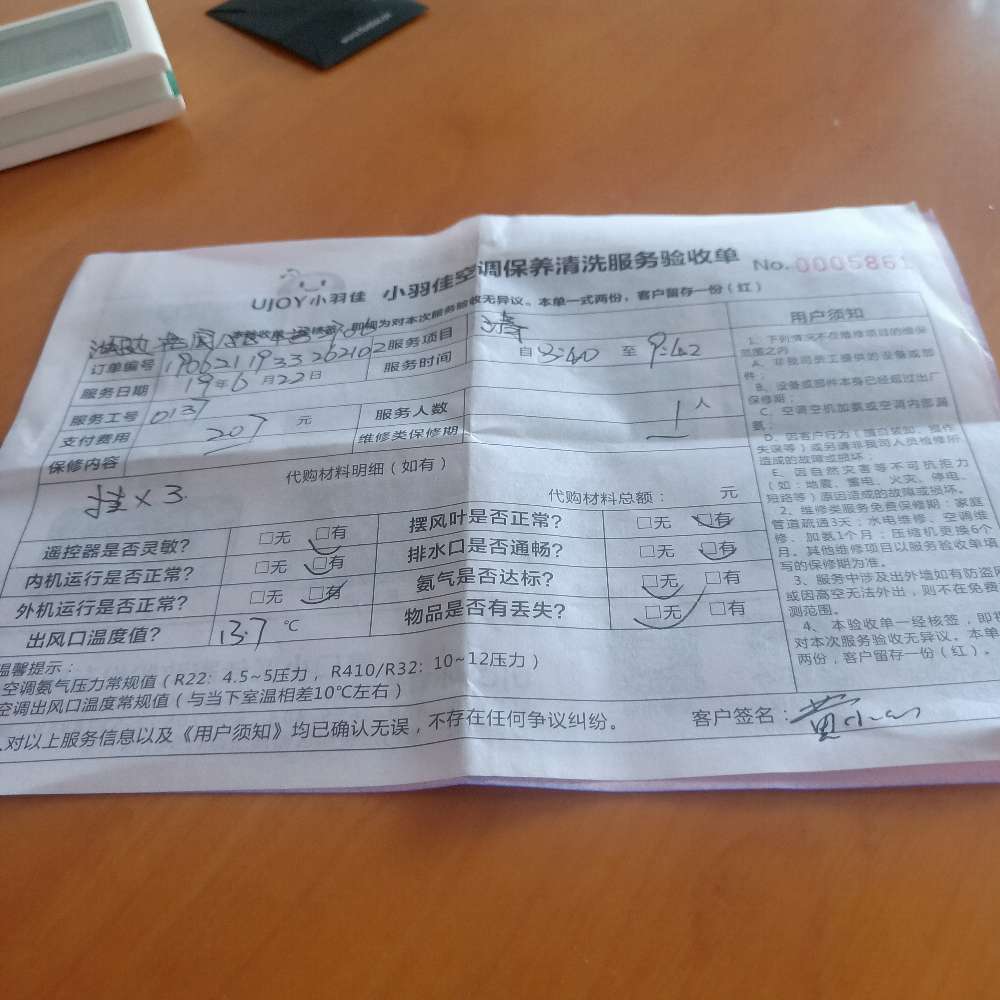 UJOY小羽佳 小羽佳空调保养清洗服务验收单 No.0005861
本验收单一经核签，即视为对本次服务验收无异议。本单一式两份，客户留存一份（红）
订单编号 190621193326210 2 服务项目 清
服务日期 19年6月22日 服务时间 自8:40 至 9:42
服务工号 0137 服务人数 1 人
支付费用 207 元 维修类保修期
保修内容
代购材料明细（如有）
挂×3
代购材料总额： 元
遥控器是否灵敏？ □无 □有 摆风叶是否正常？ □无 □有
内机运行是否正常？ □无 □有 排水口是否通畅？ □无 □有
外机运行是否正常？ □无 □有 氨气是否达标？ □无 □有
出风口温度值？ 13.7 ℃ 物品是否有丢失？ □无 □有
温馨提示：
空调氨气压力常规值（R22：4.5~5压力，R410/R32：10~12压力）
空调出风口温度常规值（与当下室温相差10℃左右）
人对以上服务信息以及《用户须知》均已确认无误，不存在任何争议纠纷。
客户签名：黄
用户须知
1、下列情况不在维修项目的维保
范围之内
A、非我司员工提供的设备或部
件；
B、设备或部件本身已经超过出厂
保修期；
C、空调空机加氨或空调内部漏
氨；
D、因客户行为（擅自装卸、操作
失误等）或另请非我司人员检修所
造成的故障或损坏；
E、因自然灾害等不可抗拒力
（如：地震、雷电、火灾、停电、
短路等）原因造成的故障或损坏。
2、维修类服务免费保修期：家庭
管道疏通3天、水电维修、空调维
修、加氨1个月；压缩机更换6个
月。其他维修项目以服务验收单填
写的保修期为准。
3、服务中涉及出外墙如有防盗网
或因高空无法外出，则不在免费
测范围。
4、本验收单一经核签，即视
对本次服务验收无异议。本单
两份，客户留存一份（红）。